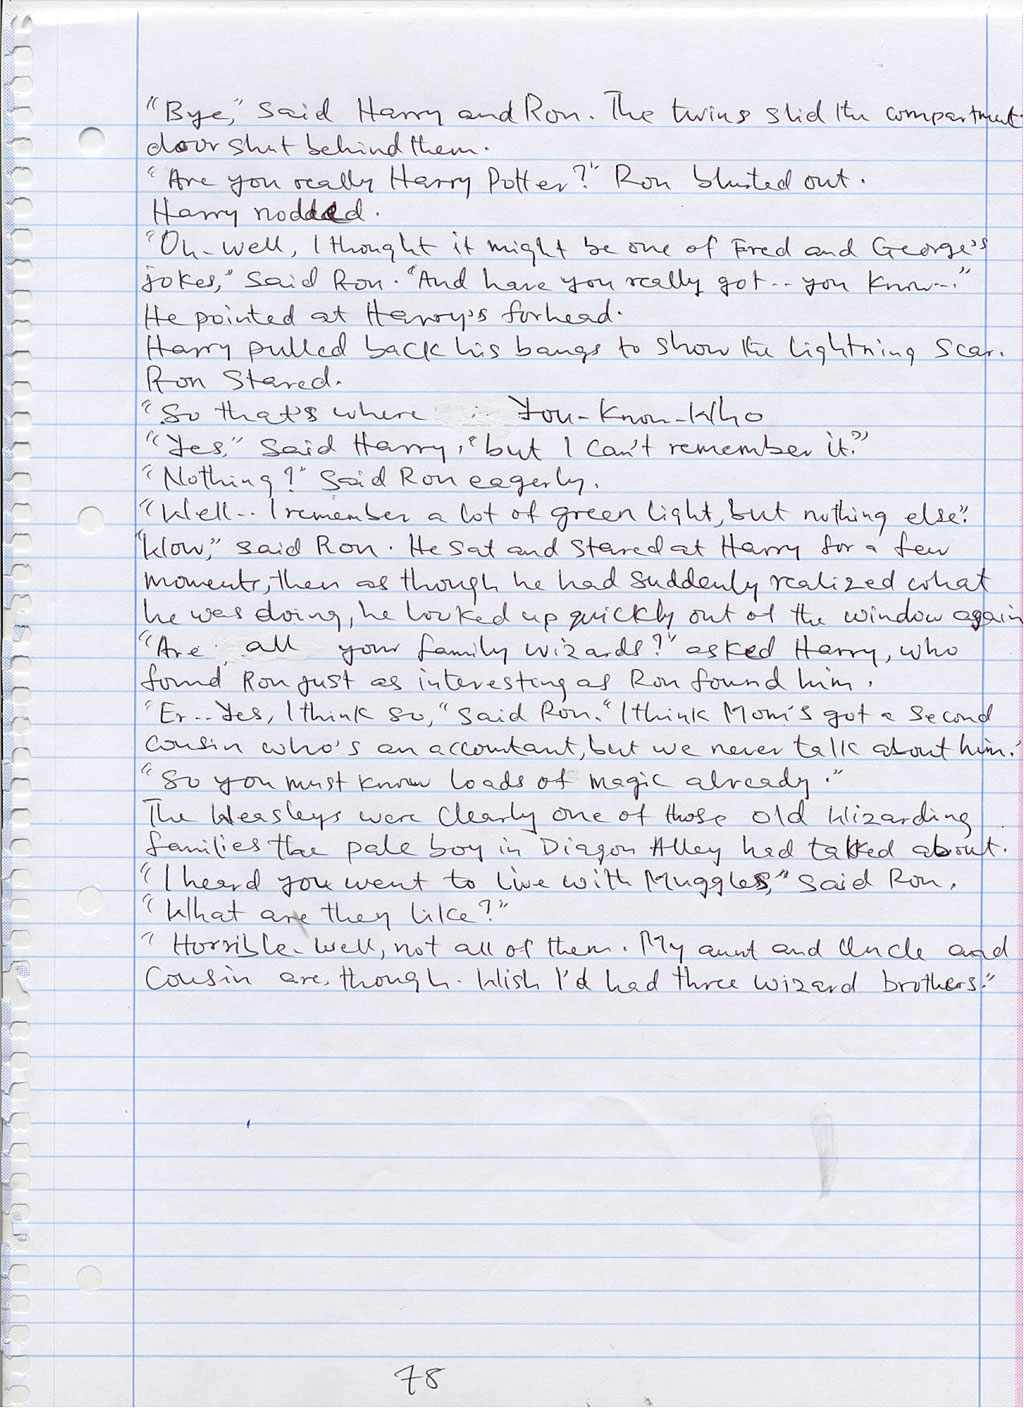 "Bye," Said Harry and Ron. The twins slid the compartment
door shut behind them.
"Are you really Harry Potter?" Ron blurted out.
Harry nodded.
"Oh-well, I thought it might be one of Fred and George's
jokes," Said Ron. "And have you really got-- you know--."
He pointed at Harry's forhead.
Harry pulled back his bangs to show the lightning scar.
Ron Stared.
"So that's where You-Know-Who
"Yes," Said Harry, "but I can't remember it."
"Nothing?" Said Ron eagerly.
"Well-- I remember a lot of green light, but nothing else."
"Wow," said Ron. He sat and stared at Harry for a few
moments, then as though he had suddenly realized what
he was doing, he looked up quickly out of the window again
"Are all your family wizards?" asked Harry, who
found Ron just as interesting as Ron found him.
"Er-- Yes, I think so," said Ron. "I think Mom's got a second
cousin who's an accountant, but we never talk about him."
"So you must know loads of magic already."
The Weasleys were clearly one of those old Wizarding
families the pale boy in Diagon Alley had talked about.
"I heard you went to live with Muggles," said Ron.
"What are they like?"
"Horrible-well, not all of them. My aunt and Uncle and
Cousin are, though. Wish I'd had three wizard brothers."
78